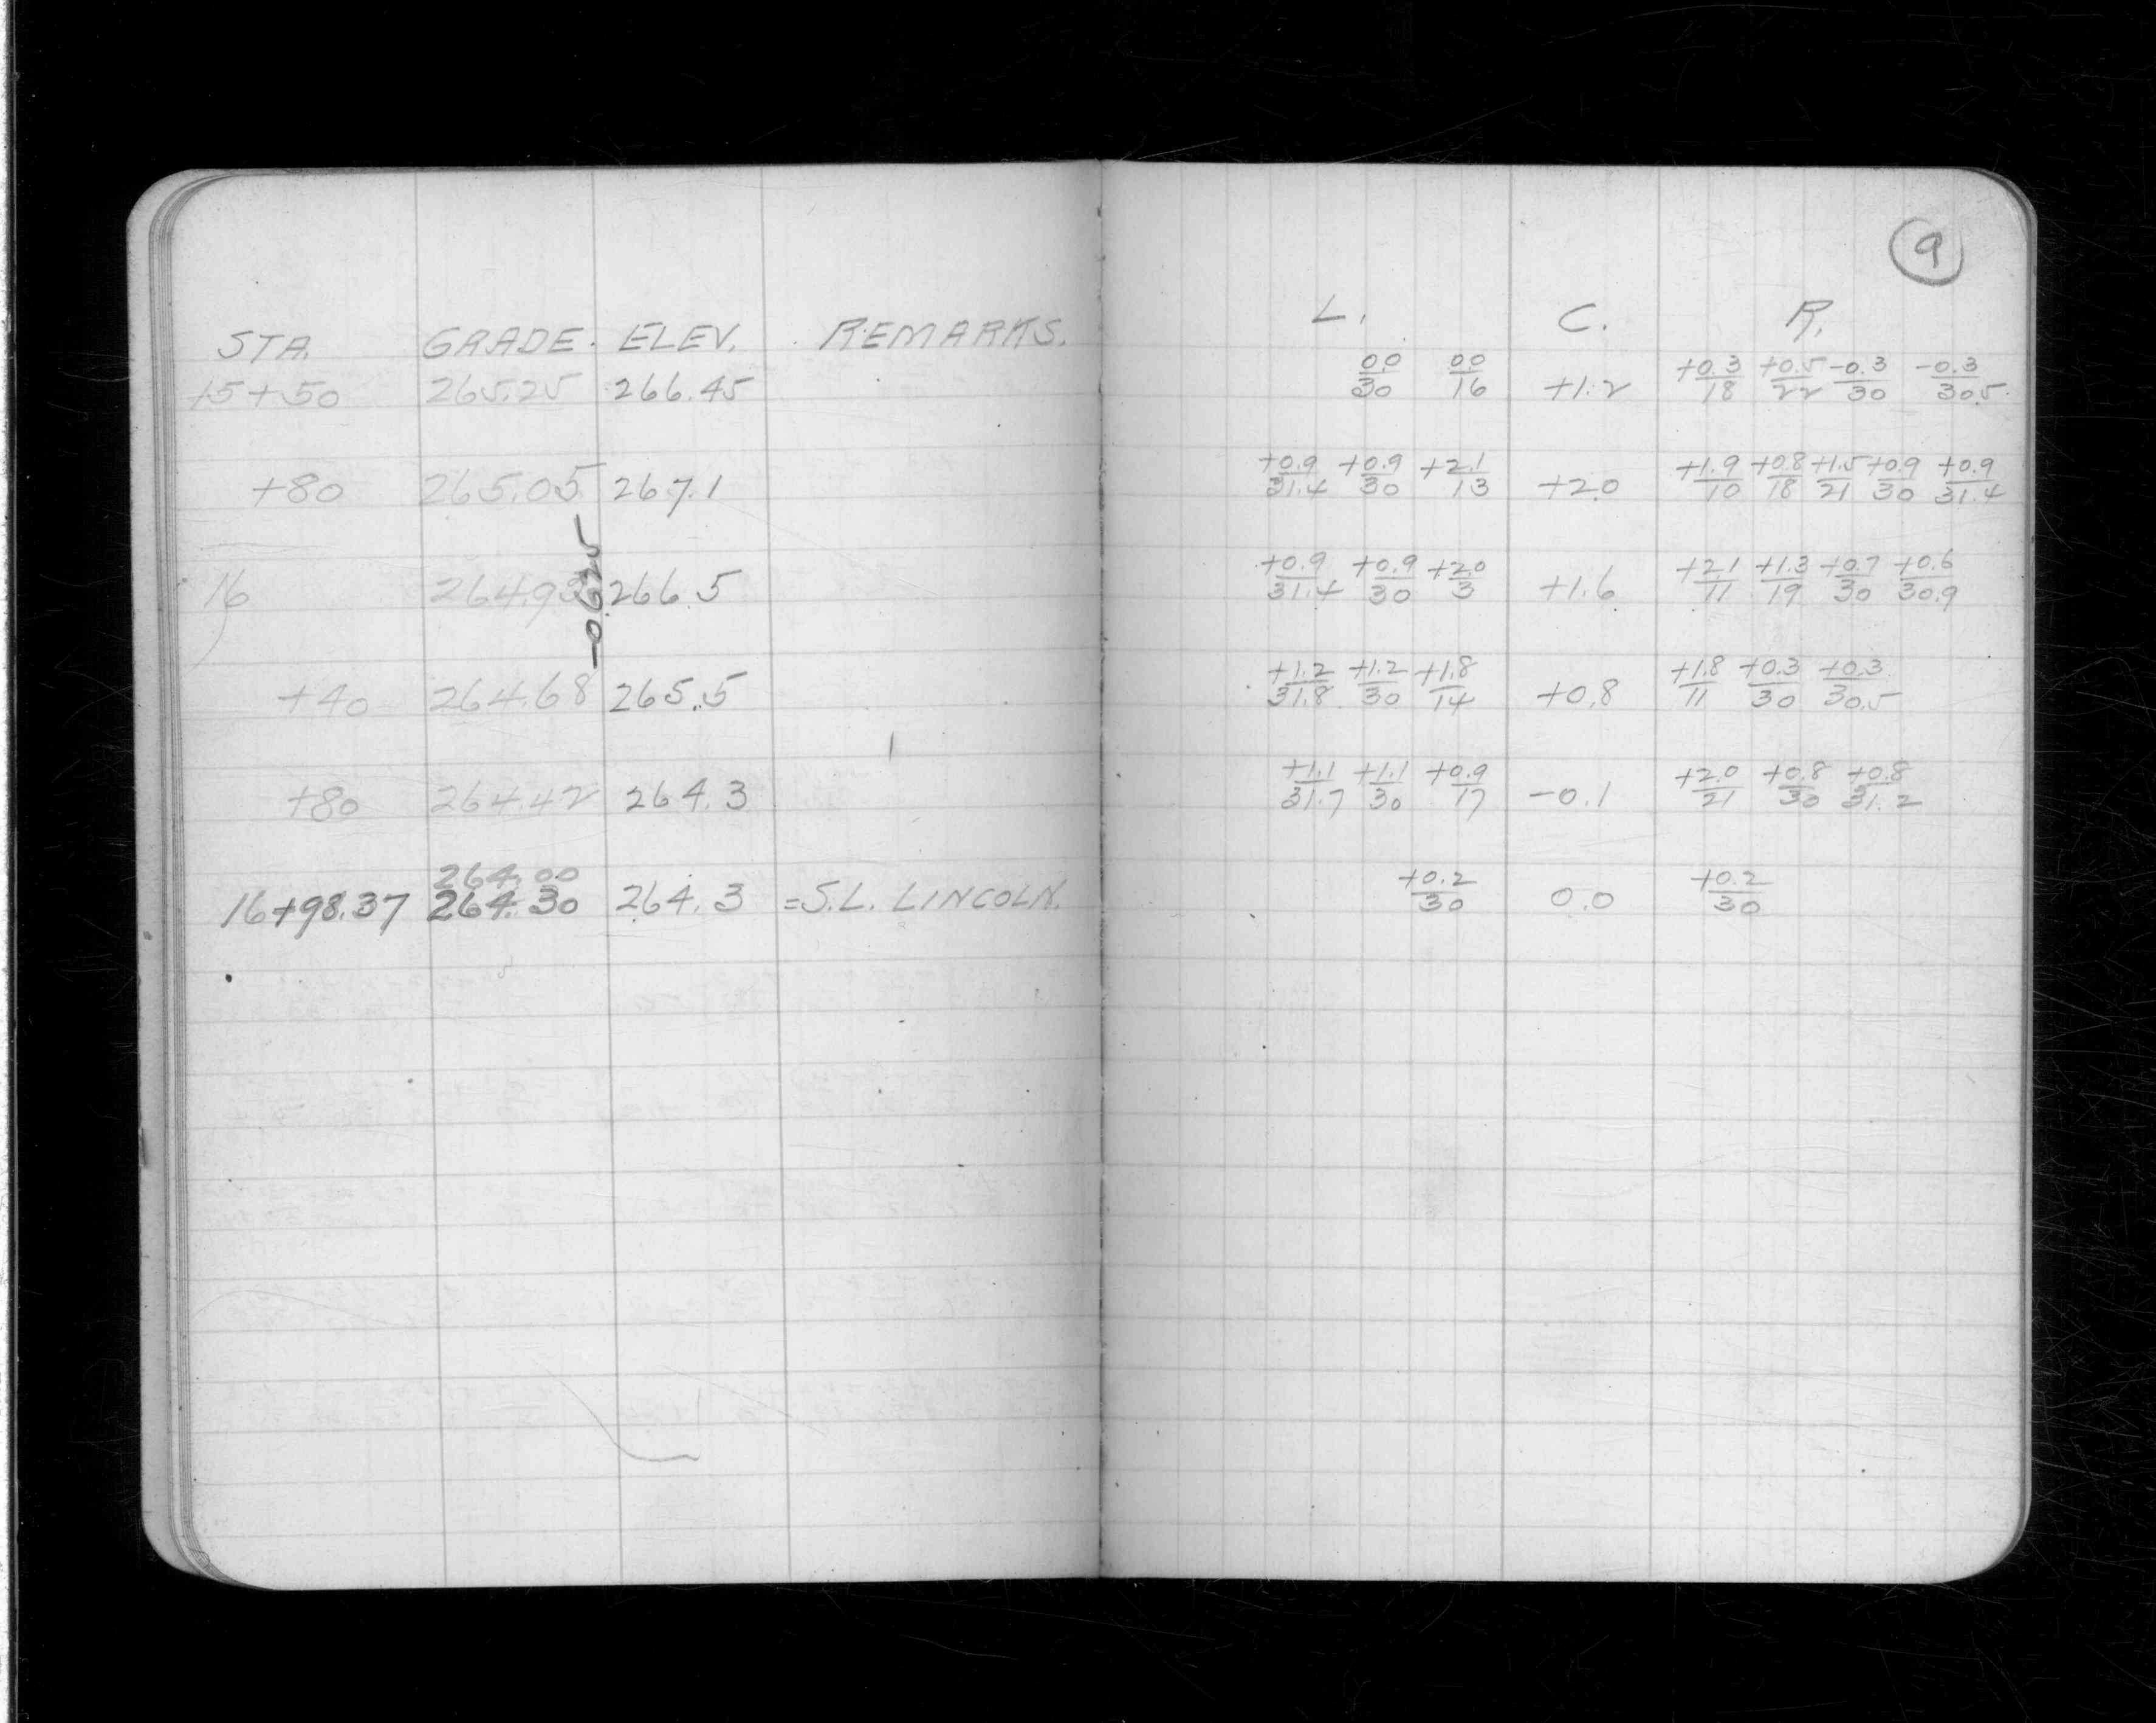 9
STA. GRADE. ELEV. REMARKS. L. C. R.
15+50 265.25 266.45 0.0/30 0.0/16 +1.2 +0.3/18 +0.5/22 -0.3/30 -0.3/30.5
+80 265.05 267.1 +0.9/31.4 +0.9/30 +2.1/13 +2.0 +1.9/10 +0.8/18 +1.5/21 +0.9/30 +0.9/31.4
-0.625
16 264.93 266.5 +0.9/31.4 +0.9/30 +2.0/3 +1.6 +2.1/11 +1.3/19 +0.7/30 +0.6/30.9
+40 264.68 265.5 +1.2/31.8 +1.2/30 +1.8/14 +0.8 +1.8/11 +0.3/30 +0.3/30.5
+80 264.42 264.3 +1.1/31.7 +1.1/30 +0.9/17 -0.1 +2.0/21 +0.8/30 +0.8/31.2
264.00
16+98.37 264.30 264.3 =S.L. LINCOLN. +0.2/30 0.0 +0.2/30